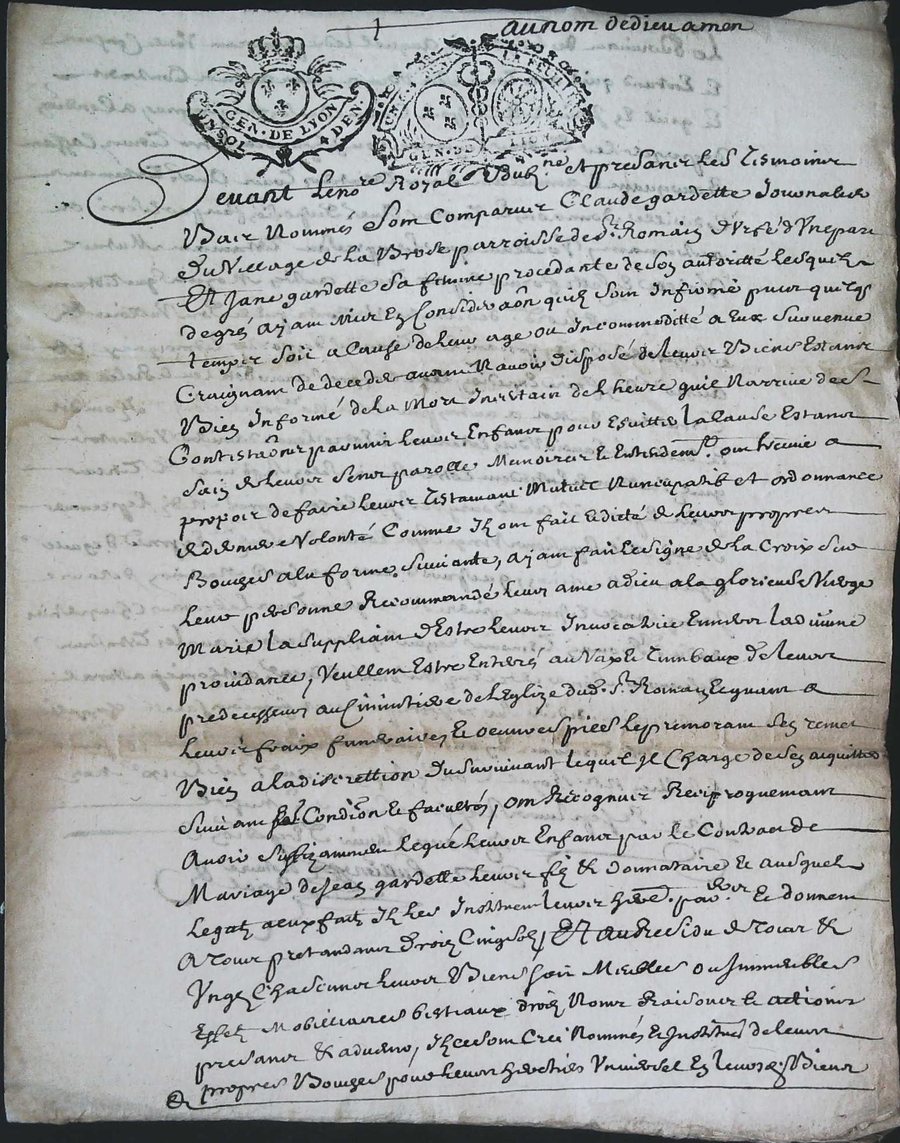 au nom de dieu amen
UN SOL GEN · DE LYON 4 DEN ·
LA FEUILLE GEN · DE LION
Devant le no.re Royal et presance les tesmoins
bas nommés som comparus Claude gardette Journalier
du village de la Brosse parroisse de S.t Romain d'urfé d'une part
Et Jane gardette sa femme procedante de son authoritté lesquels
de grés ayam consideraôn quils soin Infirmé puis quelqs
temps soit a lause de leur age ou Incommoditté a Eux survenue
Craignam de deceder avant Navoir disposé de leurs Biens Estans
Bien Informé de la Mort Incertain de l'heure quil Narrive des
Contestaôns parmis leurs Enfans pour Esvitter la lause Estans
sain de leurs sens parolle Memoires & Entendem.t om treuvé a
propos de faire leurs testamant Mutuel Nuncupatif et ordonnance
de derniere volonté Comme Ils om fait & dicté de leurs propres
Bouches a la forme suivante, ayam fait le signe de la Croix sur
leurs personne Recommandé leurs ame a dieu a la glorieuse vierge
Marie la suppliam d'Estre leurs Invocatrice Envers la divine
providance, veullem Estre Enterés au vax & tumbaux de leurs
predecesseurs au Cimintiere de l'Eglize dud. S.t Romain Et quant a
leurs fraix funeraires & oeuvres pies le premourant sen remet
Bien a la discrettion du survivant lequel Il Charge de sen aquitter
suivam sa Condiôn & facultés, om Recognus Reciproquemant
avoir suffizammen legué leurs Enfans par le Contrac de
Mariage de Jean gardette leurs fils & donnataire & ausquel
legatz a eux faitz Ils les Instituem leurs & donnem
a tous pretandans droitz Cinq solz, Et au Residu de tous &
Ungs Chascungs leurs Biens soit Meubles ou Immeubles
Effetz Mobilliaires bestiaux droitz Noms Raisons & actions
presans & advenir, Ils se som Creé Nommés & Institués de leurs
propres Bouches pour leurs heretiers universel En leursd. Biens